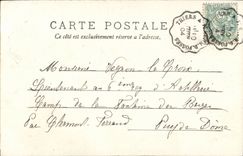 CARTE POSTALE
Ce côté est exclusivement réservé à l'adresse.
THIERS A
Monsieur Veyron la Croix
Lieutenant au 6 d'Artillerie
Camp de la Fontaine du Berger
Par Clermont Ferrand Puy de Dôme